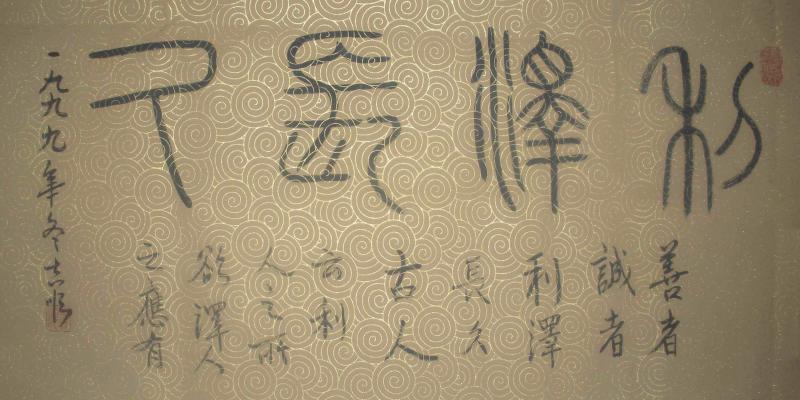 利澤長久
善者
誠者
利澤
長久
古人
言利
人之所
欲澤人
之應有
一九九九年冬